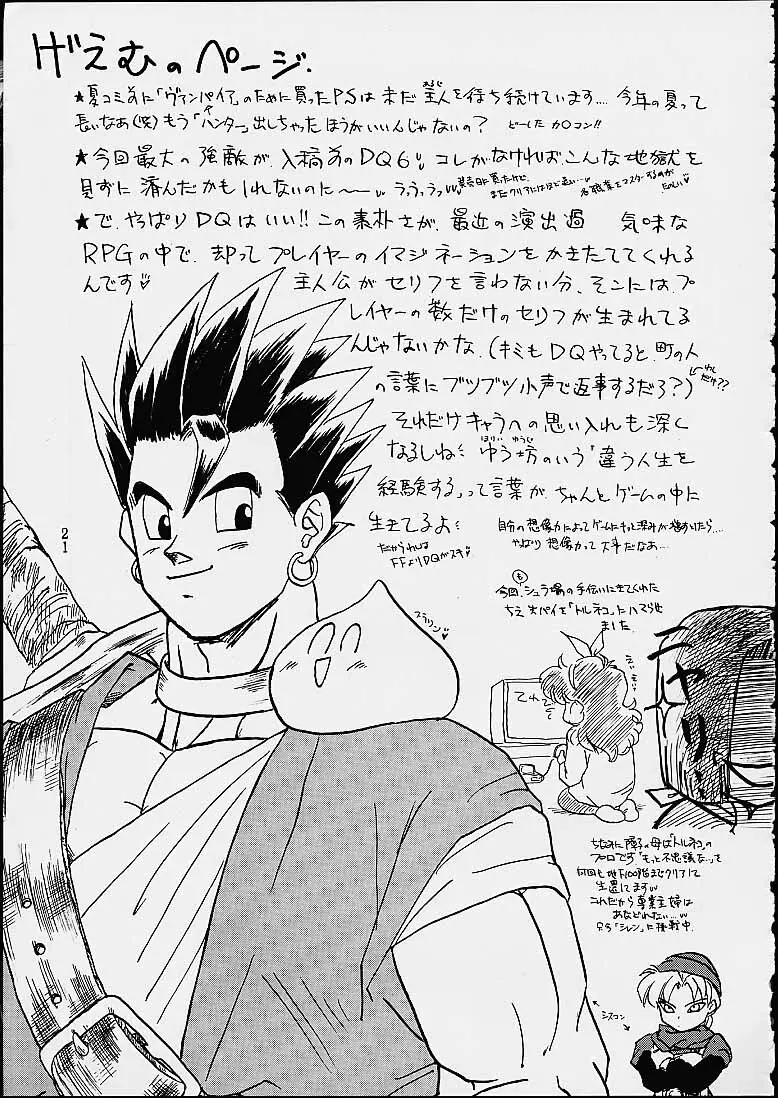 げえむのページ.
★夏コミ前に「ヴァンパイア」のために買ったPSは未だ主人を待ち続けています.... 今年の夏って
あるじ
長いなあ(笑)もう「ハンター」出しちゃったほうがいいんじゃないの?
どーしたカ○コン!!
★今回最大の強敵が、入稿前のDQ6 コレがなければこんな地獄を
見ずに済んだかもしれないのに〜〜 ラヴラヴ
発売日に買ったけど、
まだクリアにはほど遠い...
各職業をマスターするのが
たのしい♡
★で、やっぱりDQはいい!!この素朴さが、最近の演出過 気味な
RPGの中で、却ってプレイヤーのイマジネーションをかきたててくれる
んです♡
主人公がセリフを言わない分、そこには、プ
レイヤーの数だけのセリフが生まれてる
んじゃないかな、(キミもDQやってると、町の人
の言葉にブツブツ小声で返事するだろ?)
わし
だけ??
それだけキャラへの思い入れも深く
なるしね
ほりい ゆうじ
ゆう坊のいう「違う人生を
経験する」って言葉が、ちゃんとゲームの中に
生きてるよ
だからわれは
FFよりDQがスキ♡
自分の想像力によってゲームに
やっぱり想像力って大事だなあ...
スラリン♡
今回、シュラ場の手伝いにきてくれた
も
ちえ
パイを「トルネコ」にハマらせ
ました
てれ
ニヤリ
ちなみに
の母は「トルネコ」の
プロです「もっと不思議な」を
何回も地下100階までクリアして
生還してます
これだから専業主婦は
あなどれない...
只今「シレン」に挑戦中.
シスコン
21